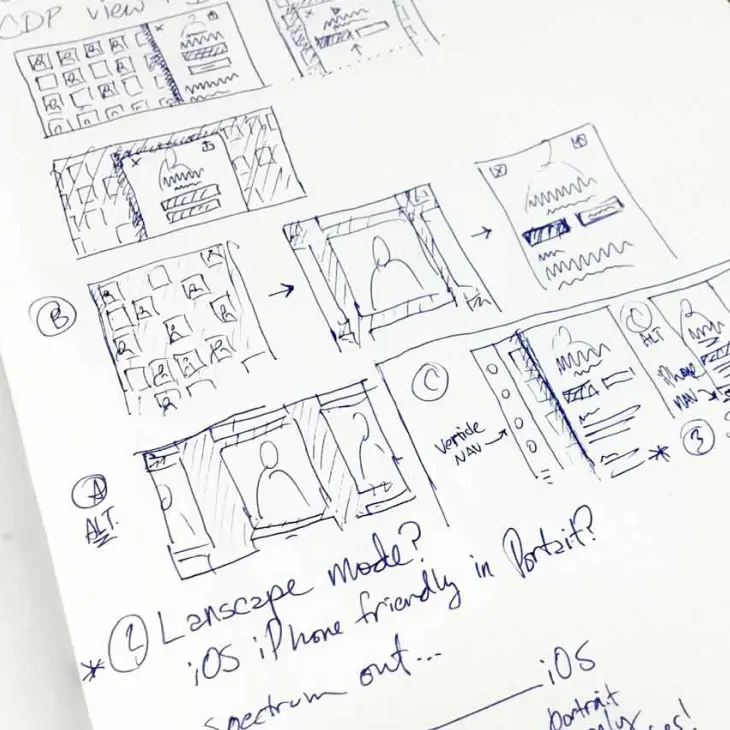 CDP view
B
C
C
ALT
iPhone
NAV
Verticle
NAV
3
A
ALT.
Lanscape Mode?
iOS iPhone friendly in Portait?
spectrum out...
iOS
portrait
only